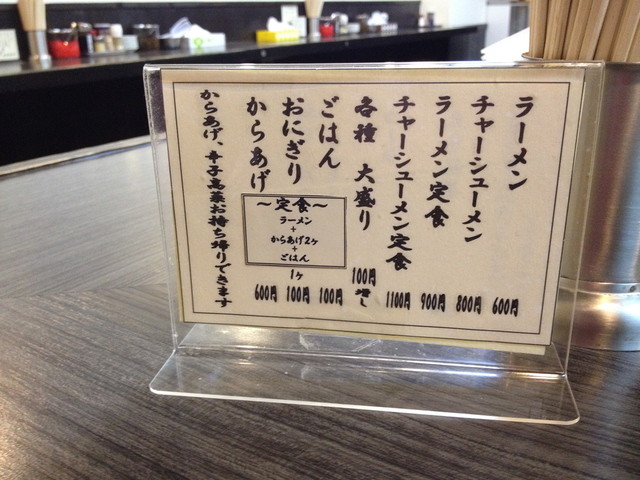 ラーメン 600円
チャーシューメン 800円
ラーメン定食 900円
チャーシューメン定食 1100円
各種 大盛り 100円増し
ごはん 100円
おにぎり 1ヶ 100円
からあげ 600円
〜定食〜
ラーメン
+
からあげ2ヶ
+
ごはん
からあげ、辛子高菜お持ち帰りできます